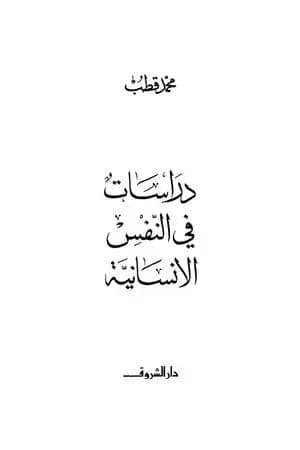 محمد قطب
دراسات
في النفس
الانسانية
دار الشروق